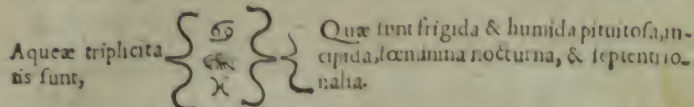 Aqueæ triplicita
tis sunt,
♋
♏
♓
Quæ sunt frigida & humida pituitosa, in-
cipida, fœminina nocturna, & septentrio-
nalia.